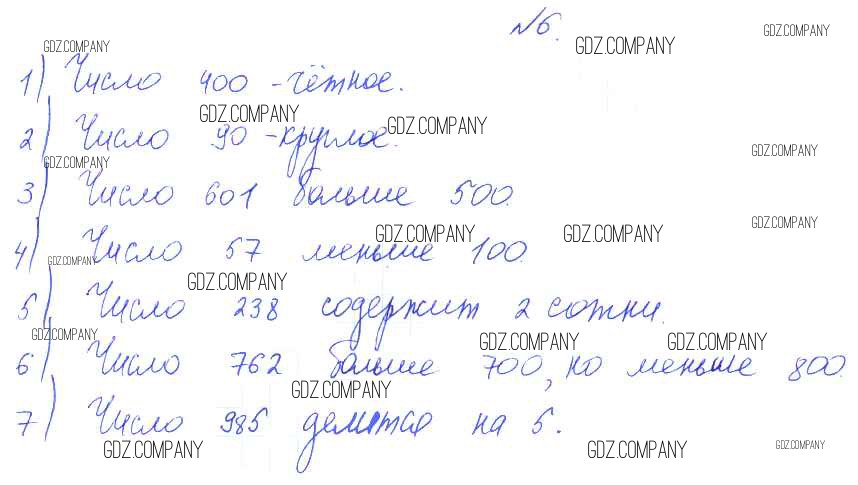 №6.
GDZ.COMPANY GDZ.COMPANY GDZ.COMPANY
1) Число 400 - чётное.
GDZ.COMPANY GDZ.COMPANY
2) Число 90 - круглое.
GDZ.COMPANY GDZ.COMPANY
3) Число 601 больше 500.
GDZ.COMPANY GDZ.COMPANY GDZ.COMPANY
4) Число 57 меньше 100.
GDZ.COMPANY GDZ.COMPANY
5) Число 238 содержит 2 сотни.
GDZ.COMPANY GDZ.COMPANY GDZ.COMPANY
6) Число 762 больше 700, но меньше 800.
GDZ.COMPANY
7) Число 985 делится на 5.
GDZ.COMPANY GDZ.COMPANY GDZ.COMPANY